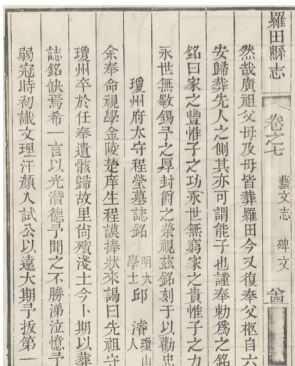 羅田縣志 卷之七 藝文志 碑文
然哉廣祖父母及母皆葬羅田今又復奉父柩自六
安歸葬先人之側其亦可謂能子也謹奉勅爲之銘
銘曰家之豐惟子之功永世無窮家之貴惟子之力
永世無斁錫予之厚封爵之榮視茲銘刻于以勸忠
瓊州府太守程瑩墓誌銘 明大學士邱濬瓊山人
余奉命視學金陵楚庠生程謨捧狀來謁曰先祖守
瓊州卒於任奉遺骸歸故里尚殯淺土今卜期以葬
誌銘缺焉希一言以光潛德予聞之不勝涕泣憶予
弱冠時初識文理汗顏入試公以遠大期予拔第一